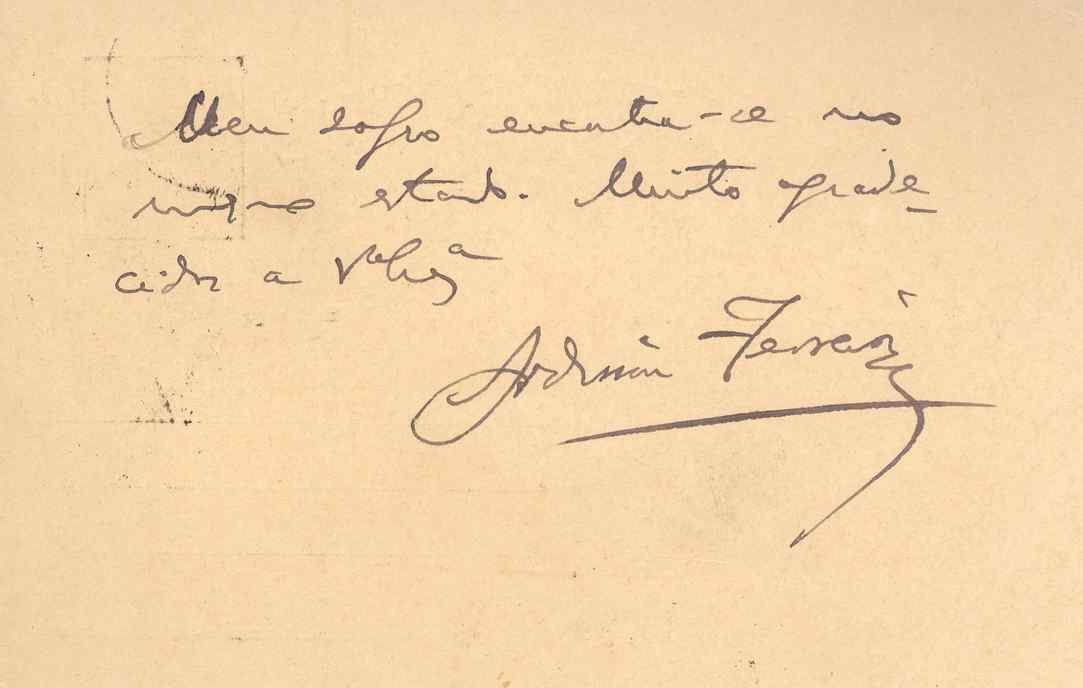 Meu sogro encontra-se no
mesmo estado. Muito agrade-
cido a V. Ex.ª
Ferreira